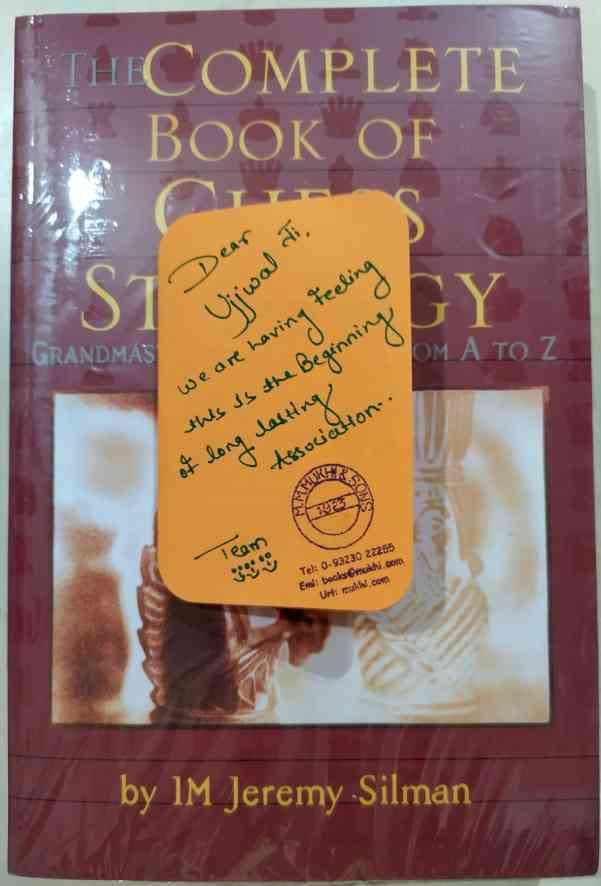 THE COMPLETE
BOOK OF
CHESS
ST GY
GRANDMAS OM A TO Z
Dear
Ujjwal Ji,
we are having Feeling
this is the Beginning
of long lasting
Association..
Team
M.M.MUKHI & SONS
Tel: 0-93230 22255
Eml: books@mukhi.com
Url: mukhi.com
by IM Jeremy Silman